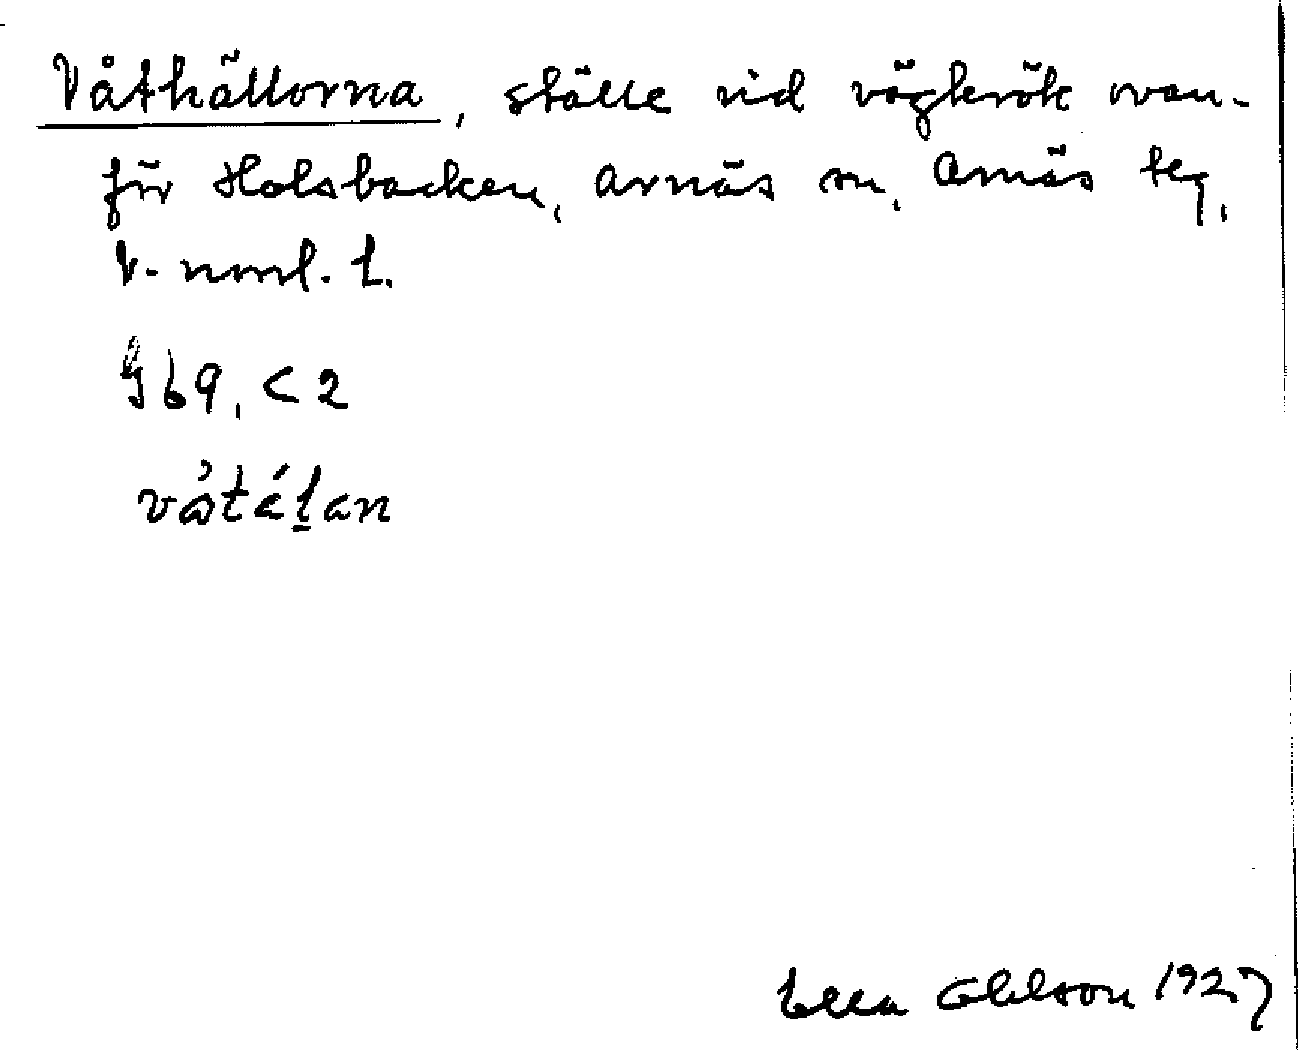 Våthällorna, ställe vid vägkrök ovan-
för Holsbacken, Arnäs sn, Arnäs tg,
V-norrl. l.
G 69, C 2
Ella Ohlson 1927